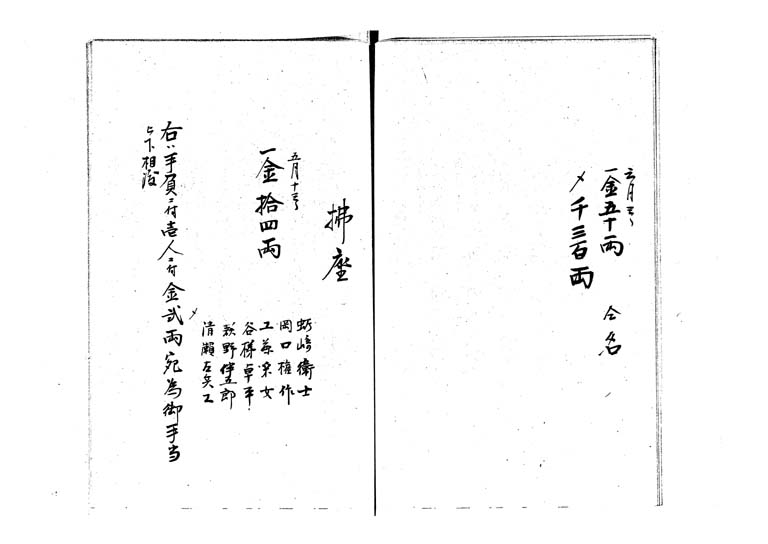 六月三日
一金五十両　仝名
〆千三百両
拂座
五月十三日
一金拾四両
蛎崎衛士
岡口権作
工藤粂女
谷梯卓平
萩野伴五郎
清瀬左矢工
〆
右ハ手負ニ付壱人ニ付金弐両宛為御手当
被下相渡